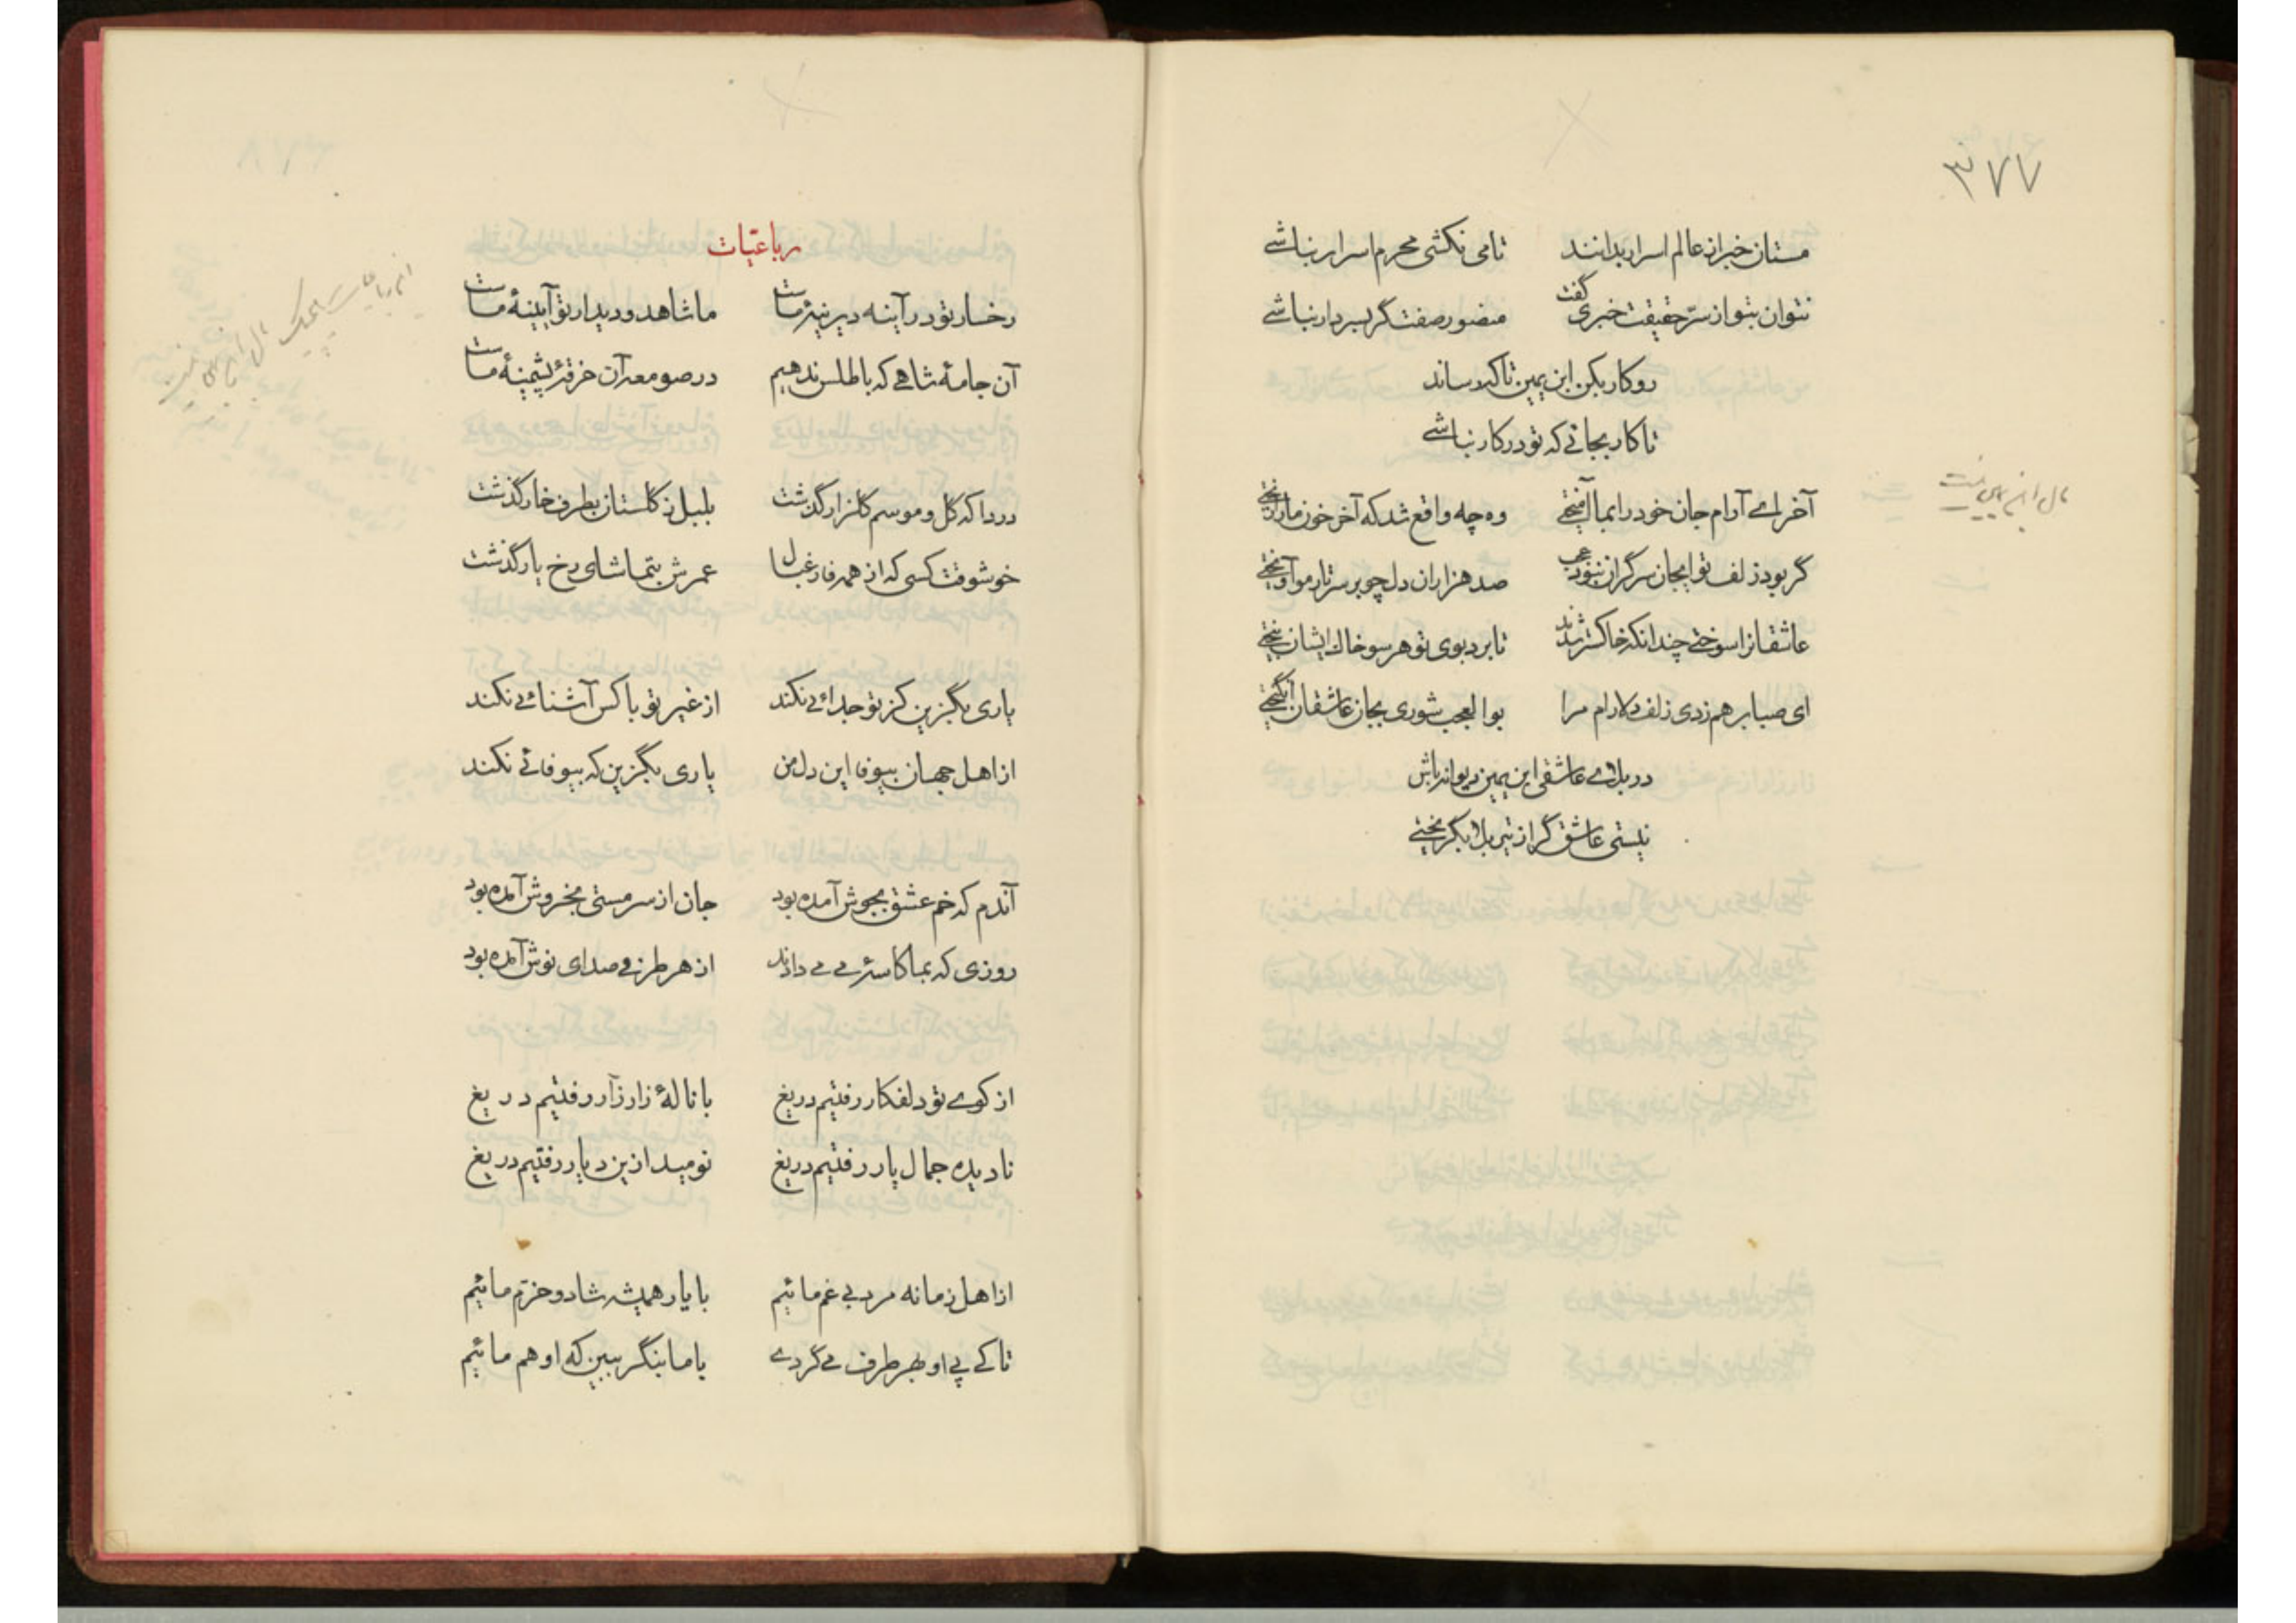 ۳۷۷
مستان خبر از عالم اسرار بدانند تا می نکشی محرم اسرار نباشے
نتوان بتو از سرّ حقیقت خبری گفت منصور صفت گر بسر دار نباشے
رو کار بکن ابن یمین تا که رساند
تا کار بجائے که تو در کار نباشے
آخر اے آرام جان خود را بما وه چه واقع شد که آخر خون ما را ریختے
گر بود زلف تو ایجان سرگران نبود عجب صد هزاران دل چو بر سر تار مو آویختے
عاشقانرا سوختے چندانکه خاکستر شدند تا برد بوی تو هر سو خاک ایشان بیختے
ای صبا برهم زدی زلف دلارام مرا بوالعجب شوری بجان عاشقان انگیختے
در بلاے عاشقی ابن یمین دیوانه باش
نیستی عاشق گر از تیر بلا بگریختے
مال ابن یمین نیست
رباعیّات
رخسار تو در آینه دیرینهٔ ماست ما شاهد و دیدار تو آیینهٔ ماست
آن جامهٔ شاهے که باطلس ندهیم در صومعه آن خرقهٔ پشمینهٔ ماست
دردا که گل و موسم گلزار گذشت بلبل ز گلستان بطرف خار گذشت
خوشوقت کسی که از همه فارغبال عمرش بتماشای رخ یار گذشت
یاری بگزین کز تو جدائے نکند از غیر تو با کس آشنائے نکند
از اهل جهان بیوفا این دل من یاری بگزین که بیوفائے نکند
آندم که خم عشق بجوش آمده بود جان از سر مستی بخروش آمده بود
روزی که بما کاسهٔ مے مے دادند از هر طرفے صدای نوش آمده بود
از کوے تو دلفکار رفتیم دریغ با نالهٔ زار زار رفتیم دریغ
نادیده جمال یار رفتیم دریغ نومید ازین دیار رفتیم دریغ
از اهل زمانه مرد بے غم مائیم با یار همیشه شاد و خرّم مائیم
تا کے پے او بهر طرف مے گردے با ما بنگر ببین که او هم مائیم